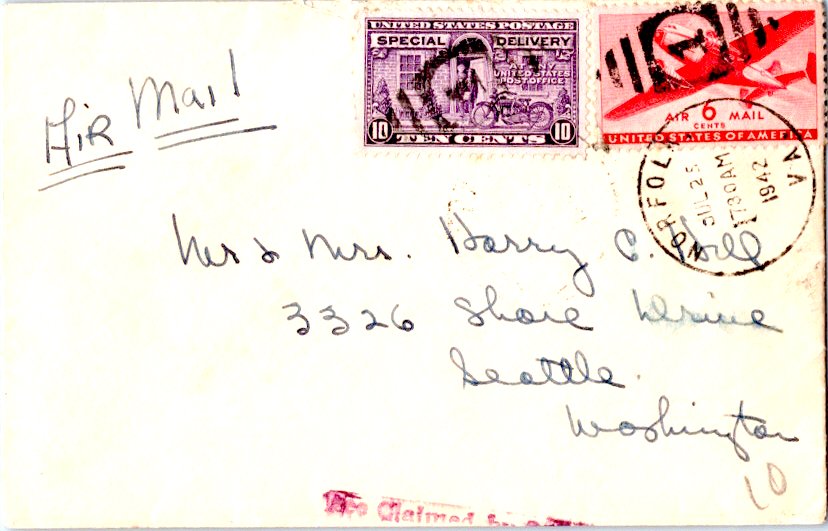 Air Mail
UNITED STATES POSTAGE
SPECIAL DELIVERY
AT ANY
UNITED STATES
POST OFFICE
10 TEN CENTS 10
AIR 6 MAIL
CENTS
UNITED STATES OF AMERICA
NORFOLK VA
JUL 25
730 AM
1942
Mr & Mrs. Harry C. Hill
3326 Shore Drive
Seattle.
Washington
10
Claimed by